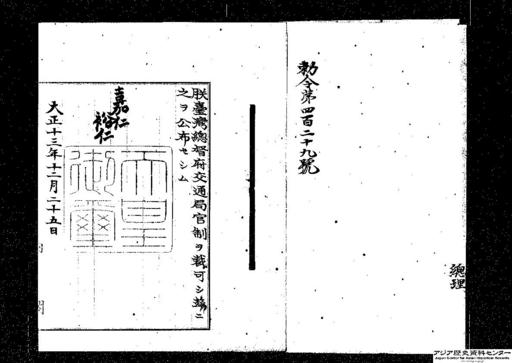 勅令第四百二十九號
總理
朕臺灣總督府交通局官制ヲ裁可シ茲ニ
之ヲ公布セシム
嘉仁
裕仁
天皇
御璽
大正十三年十二月二十五日
閣
アジア歴史資料センター
Japan Center for Asian Historical Records